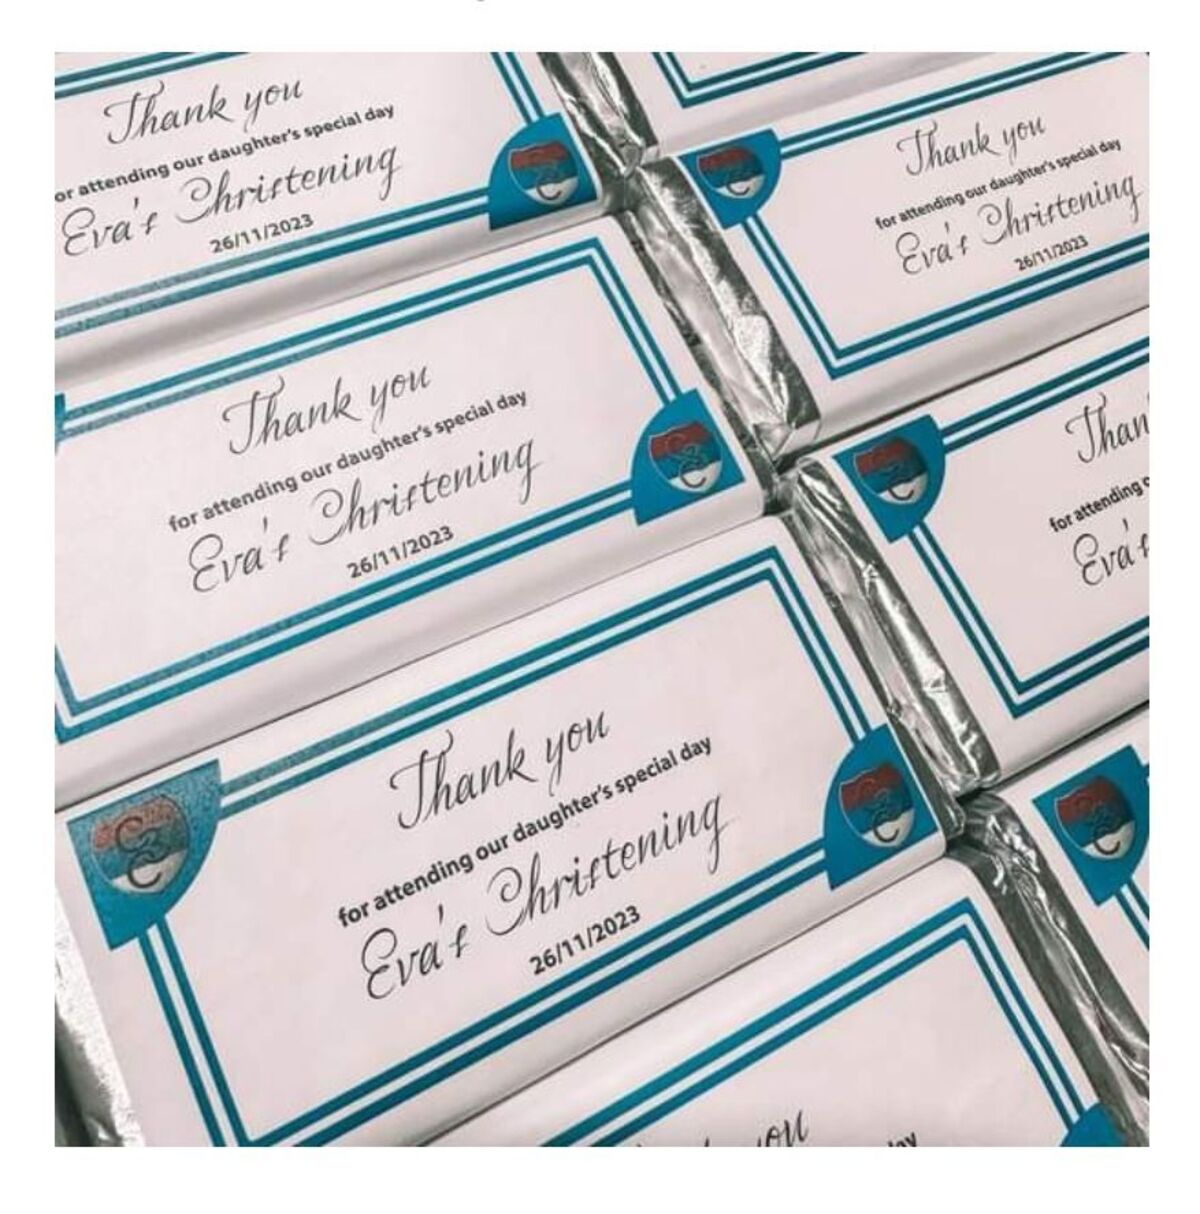 Thank you
or attending our daughter's special day
Eva's Christening
26/11/2023
Thank you
for attending our daughter's special day
Eva's Christening
26/11/2023
Thank you
for attending our daughter's special day
Eva's Christening
26/11/2023
Than
for attending
Eva's
Thank you
for attending our daughter's special day
Eva's Christening
26/11/2023
you
ay